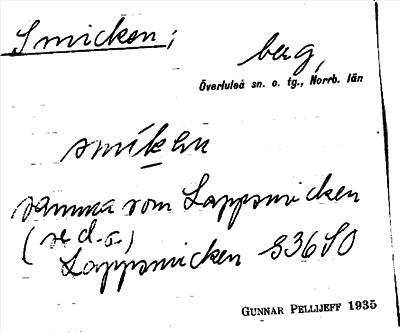 Smicken;
berg,
Överluleå sn. o. tg., Norrb. län
smik̲en
samma som Lappsmicken
(se d.o.)
Lappsmicken S36SO
GUNNAR PELLIJEFF 1935